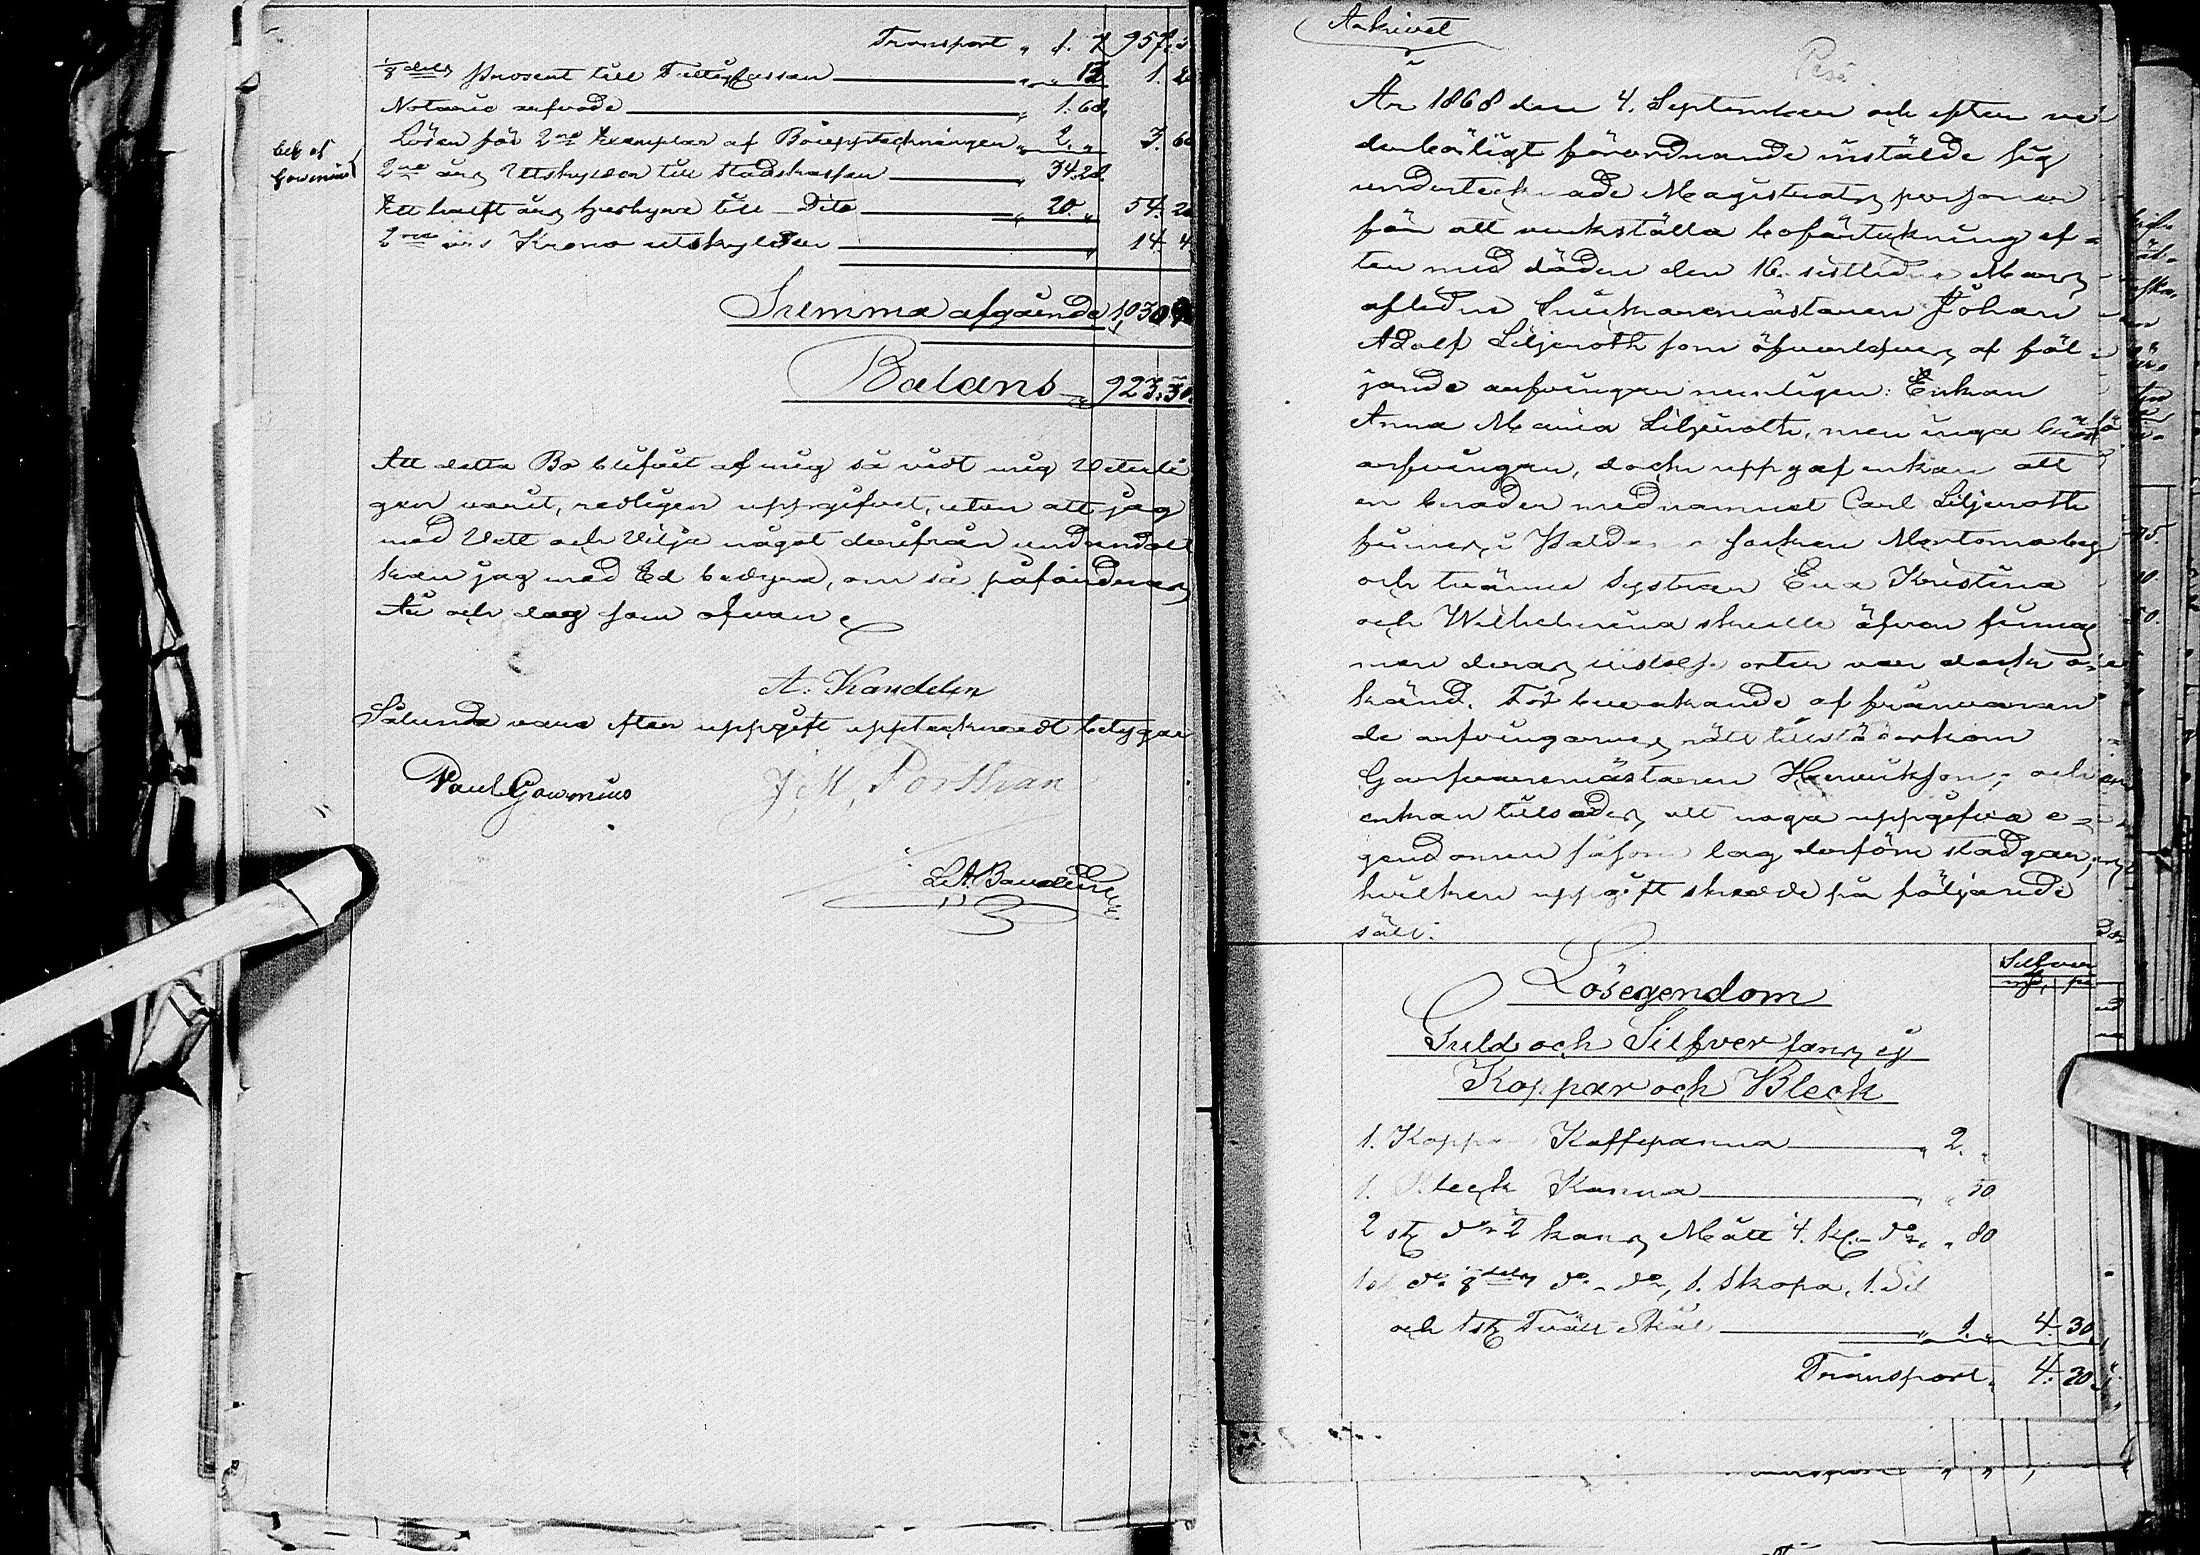 Transport „ 1. 7 957.
1/8 dels prosent till Fattigkassan „ „ 13 1. 20
Notarie arfvode „ 1. 60.
Lösen för 2ne Exemplar af Bouppteckningen „ 2. „ 3. 60
bet af
Gowenius
2ne års Utskylder till Stadskassan „ 34. 20.
Ett halft års hyra till Dito „ 20. „ 54. 20
2ne års Krono utskylder „ 14. 4
Summa afgående 1,030
Balans „ 923. 30.
Att detta Bo blifvit af mig så vidt mig Veterli
gen varit, redligen uppgifvet, utan att jag
med Vett och Vilja något derifrån undandolt
kan jag med Ed bedyra, om så påfordras
År och dag som ofvan.
A. Kandelin
Sålunda vara efter uppgift upptecknadt betygar
Paul Gowenius J. M. Porssman
Arkivet
År 1868 den 4. September och efter ve
derbörligt förordnande instälde sig
undertecknade Magistrats personer
för att verkställa boförtekning ef=
ter med döden den 16. sistledne Mars
afledne Snickaremästaren Johan
Adolf Liljeroth som öfverlefves af föl=
jande arfvingar nemligen: Enkan
Anna Maria Liljeroth, men inga bröst
arfvingar, dock uppgaf enkan att
en broder mednamnet Carl Liljeroth
finnes i socken
och tvänne Systrar Eva Kristina
och Wilhelmina skulle äfven finnas
men deras vistelse orter var dock o=
känd. För bevakande af frånvaran
de arfvingarnes rätt tillstädeskom
Garfvaremästaren Henrikson, och
enkan tillsades att noga uppgifva e=
gendomen såsom lag derföre stadgar,
hvilken uppgift skedde på följande
sätt:
Silfver
Lösegendom
Guld och Silfver fans ej
Koppar och Bleck
1. Koppar Kaffepanna „ 2. „
1. Bleck Kanna „ „ 50
2 st do 2 kans Mått 4. kl. do „ „ 80
1 st do 1/8 dels do do, 1. Skopa, 1. Sil
och 1 st Tvätt Skål „ 1. „ 4. 30
Transport „ 4. 30